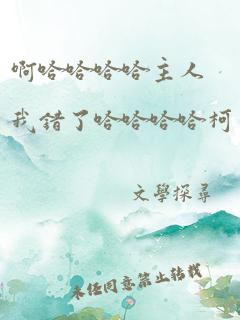 啊哈哈哈哈主人
我错了哈哈哈哈柯
文學探尋
未经同意禁止转载